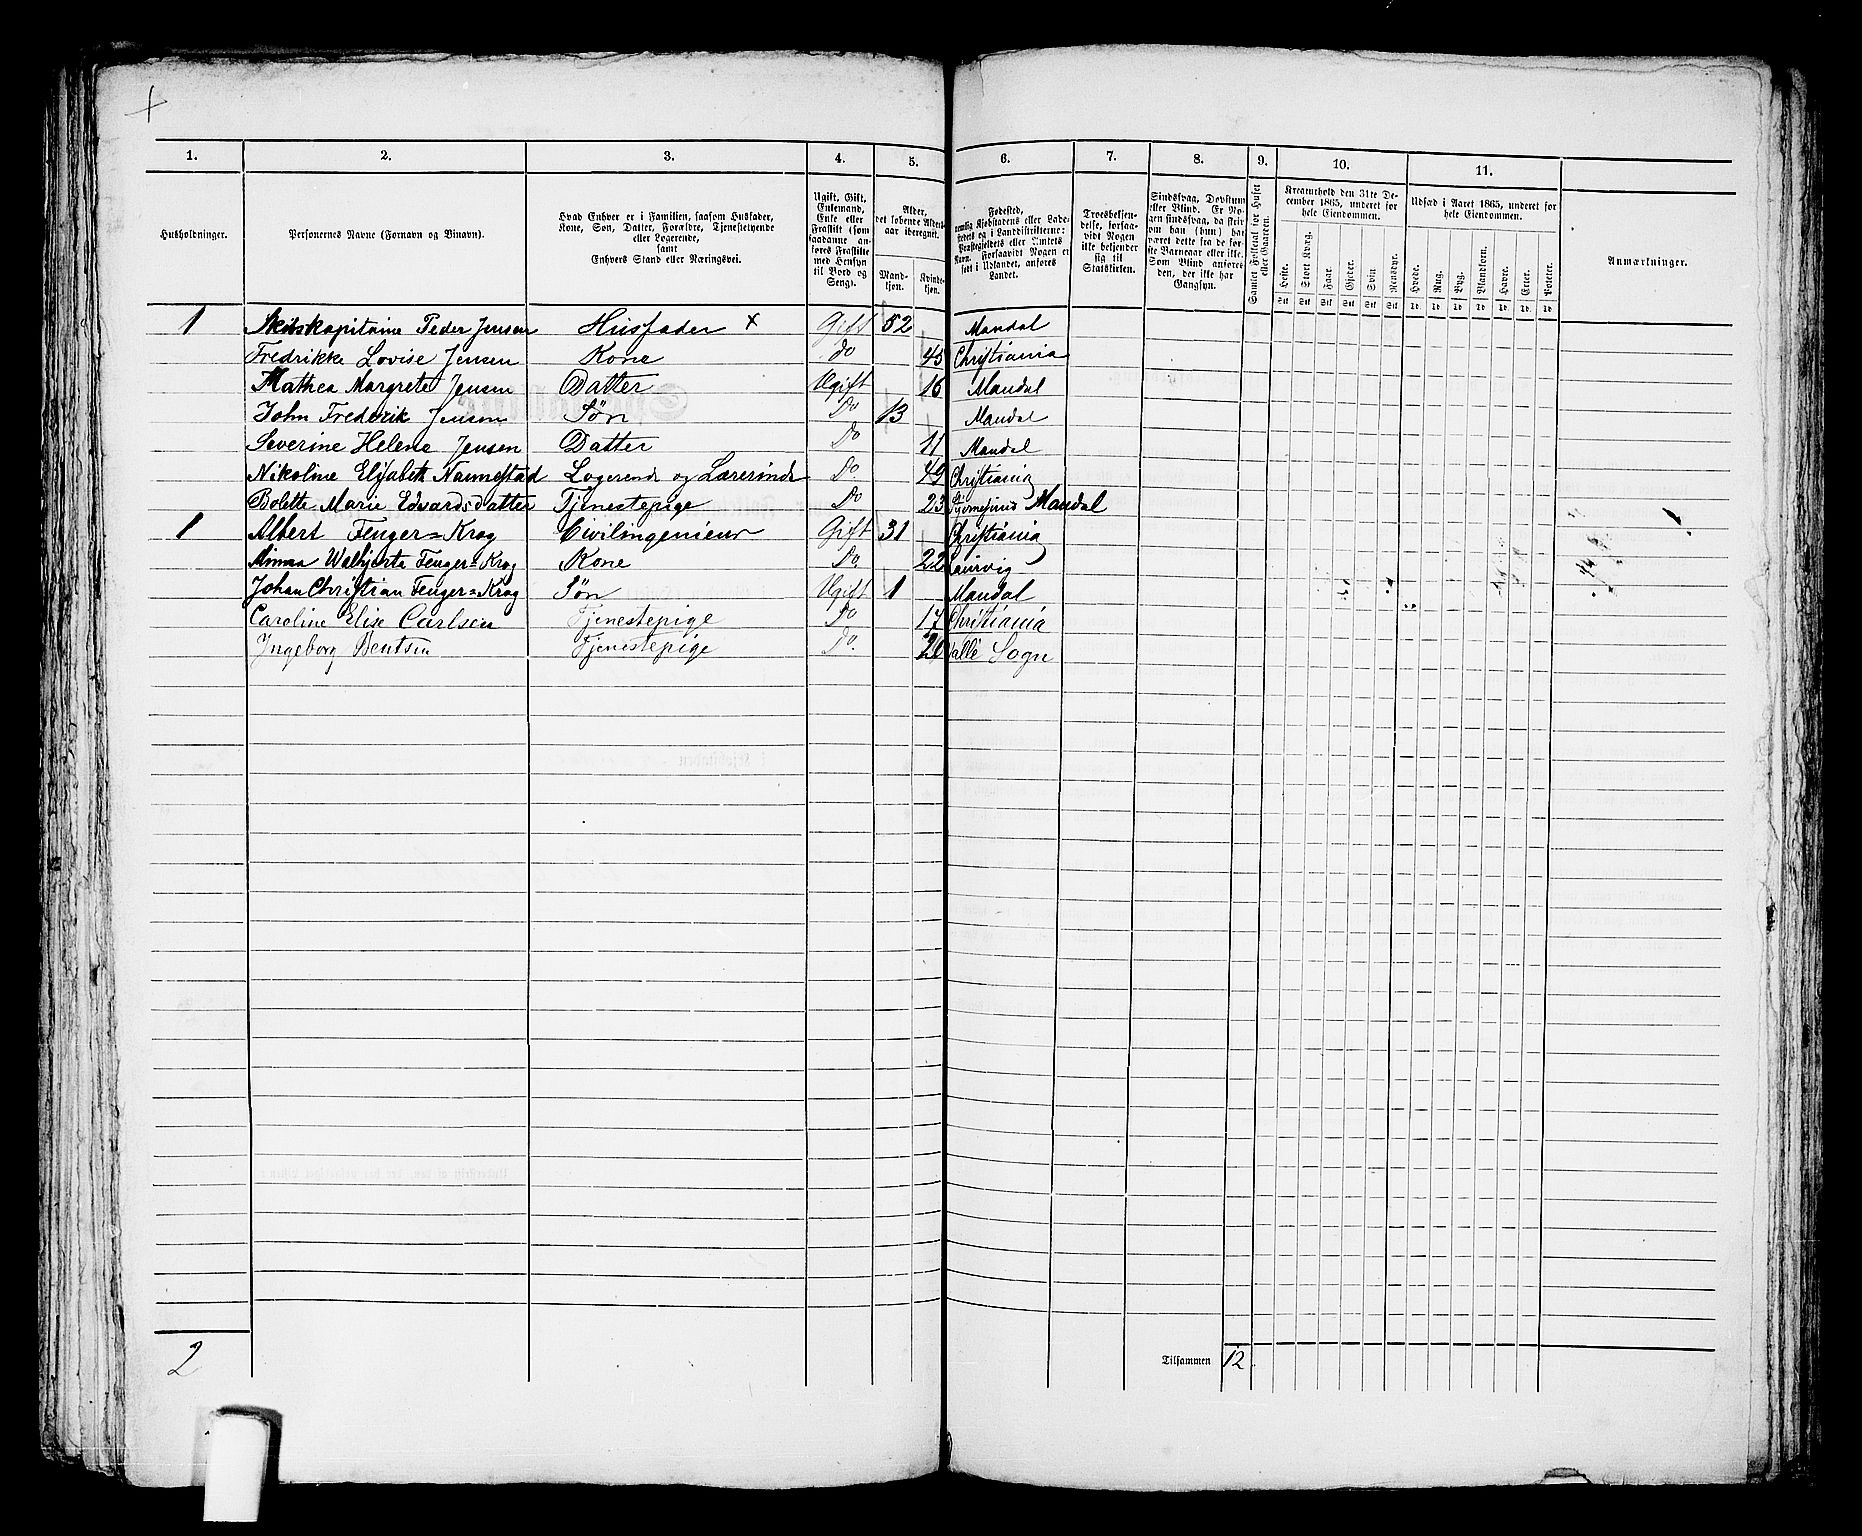 +
1. 2. 3. 4. 5. 6. 7. 8. 9. 10. 11.
Husholdninger.
Personernes Navne (Fornavn og Binavn).
Hvad Enhver er i Familien, saasom Husfader,
Kone, Søn, Datter, Forældre, Tjenestetyende
eller Logerende,
samt
Enhvers Stand eller Næringsvei.
Ugift, Gift,
Enkemand,
Enke eller
Fraskilt (som
saadanne an-
føres Fraskilte
med Hensyn
til Bord og
Seng).
Alder,
det løbende Alders-
aar iberegnet.
Mand-
kjøn.
Kvinde-
kjøn.
Fødested,
nemlig Kjøbstadens eller Lade-
stedets og i Landdistrikterne:
Præstegjeldets eller Amtets
Navn. Forsaavidt Nogen er
født i Udlandet, anføres
Landet.
Troesbekjen-
delse, forsaa-
vidt Nogen
ikke bekjender
sig til
Statskirken.
Sindssvag, Døvstum
eller Blind. Er No-
gen sindssvag, da skriv
om han (hun) har
været dette fra de før-
ste Barneaar eller ikke.
Som Blind anføres
den, der ikke har
Gangsyn.
Samlet Folketal for Huset
eller Gaarden.
Kreaturhold den 31te De-
cember 1865, underet for
hele Eiendommen.
Heste. Stort Kvæg. Faar. Gjeder. Svin. Rensdyr.
Stk Stk Stk Stk Stk Stk
Udsæd i Aaret 1865, underet for
hele Eiendommen.
Hvede. Rug. Byg. Blandkorn. Havre. Erter. Poteter.
Td. Td. Td. Td. Td. Td. Td.
Anmærkninger.
1 Skibskapitaine Peder Jensen Husfader x Gift 52 Mandal
Fredrikke Lovise Jensen Kone Do 45 Christiania
Mathea Margrete Jensen Datter Ugift 16 Mandal
John Frederik Jensen Søn Do 13 Mandal
Severine Helene Jensen Datter Do 11 Mandal
Nikoline Elisabeth Nannestad Logerende og Lærerinde Do 49 Christiania
Bolette Marie Edvardsdatter Tjenestepige Do 23 Mandal
1 Albert Fenger=Krog Civilingenieur Gift 31 Christiania
Fenger=Krog Kone Do 22 Laurvig
Johan Christian Fenger=Krog Søn Ugift 1 Mandal
Caroline Elise Carlsen Tjenestepige Do 17 Christiania
Ingeborg Bentsen Tjenestepige Do. 20 Halle Sogn
2 Tilsammen 12